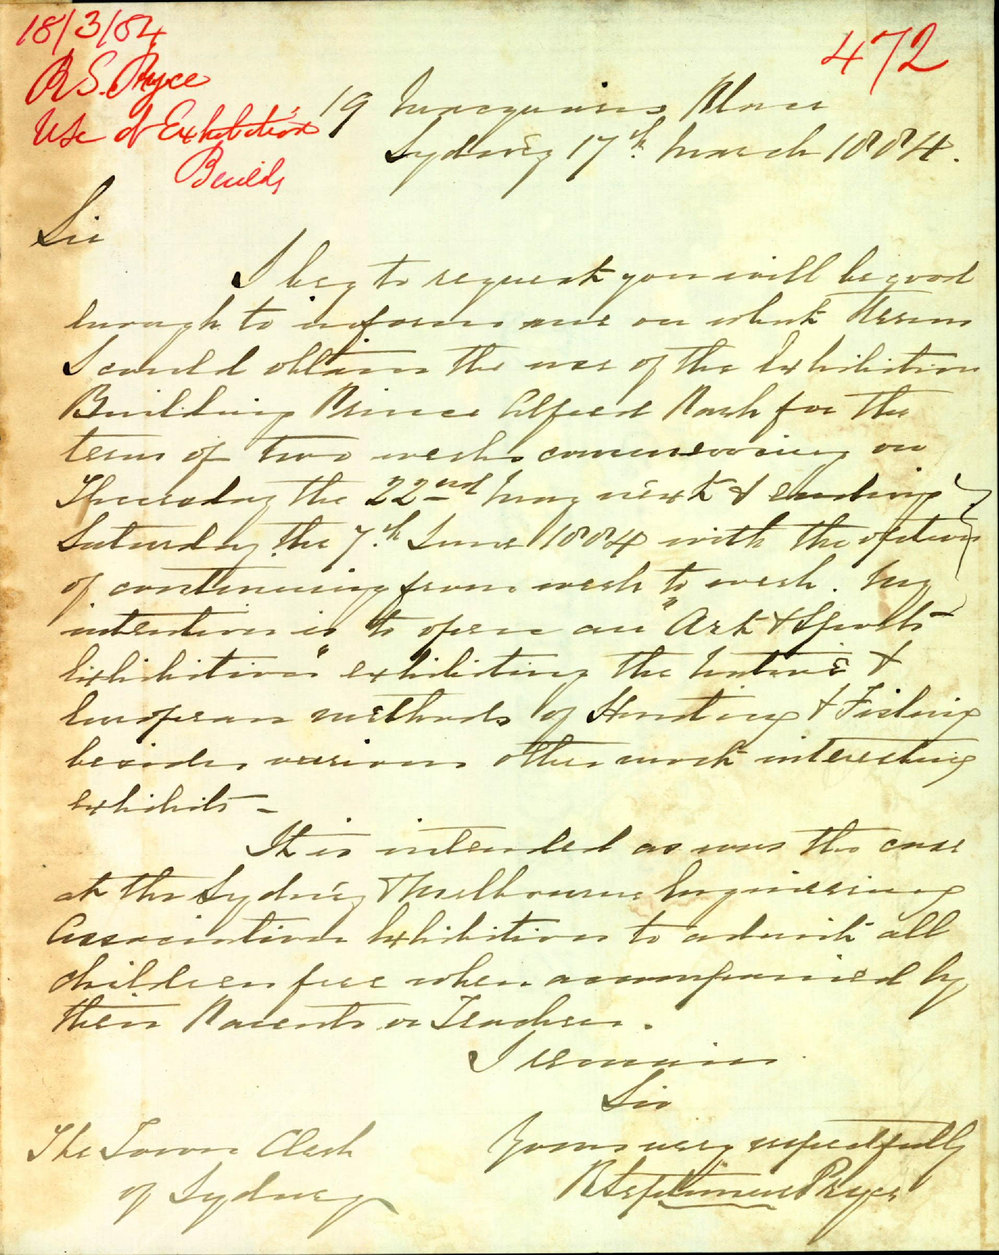 18/3/84
R S. Pryce
Use of Exhibition
Builds
472
19 Macquarie Place
Sydney 17th March 1884.
Sir
I beg to request you will be good
enough to inform me on what Terms
I could obtain the use of the Exhibition
Building Prince Alfred Park for the
term of two weeks commencing on
Thursday the 22nd May next & ending
Saturday the 7th June 1884 with the option
of continuing from week to week. My
intention is to open an "Art & Sports
Exhibition" exhibiting the Native &
European methods of Hunting & Fishing
besides various other most interesting
exhibits -
It is intended as was the case
at the Sydney & Melbourne Engineering
Association Exhibition to admit all
children free when accompanied by
their Parents or Teachers.
I remain
Sir
Yours very respectfully
R Septimus Pryce
The Town Clerk
of Sydney